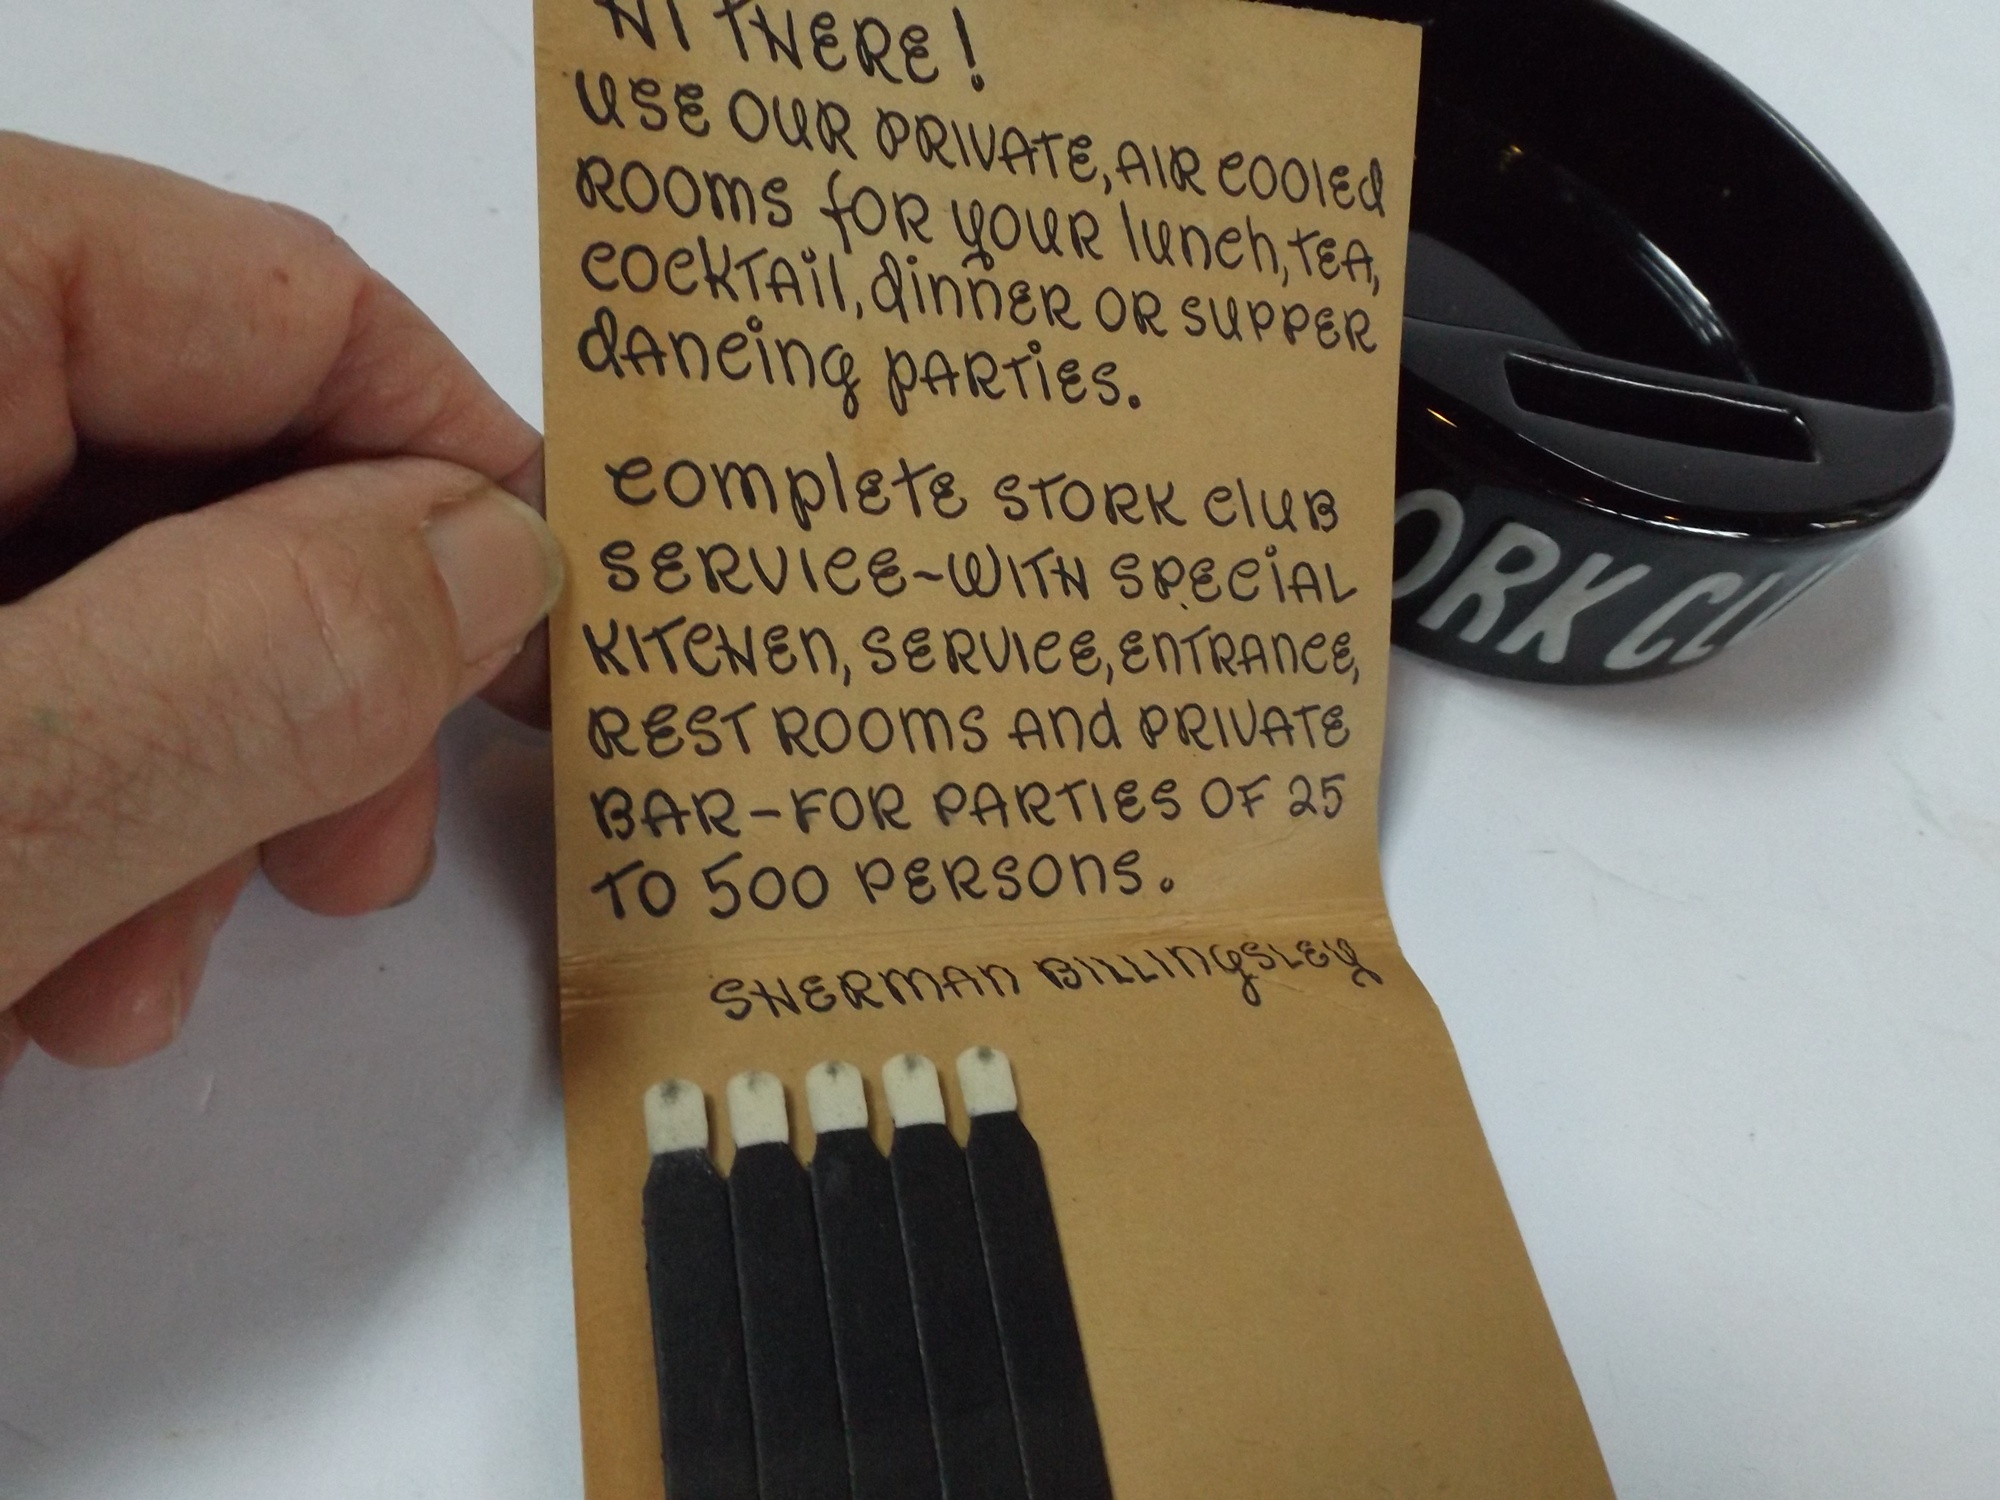 HI THERE!
USE OUR PRIVATE, AIR COOlEd
ROOMS fOR yOUR lunch, TEA,
COCKTAil, dinnER OR SUPPER
dAncing pARTiES.
COmplETE STORK CluB
SERVICE-WITH SPECiAL
KITCHEn, SERVICE, EnTRAnCE,
REST ROOMS And PRIVATE
BAR-FOR PARTIES OF 25
TO 500 PERSOnS.
SHERMAn BILLIngSLEy
ORK CLU